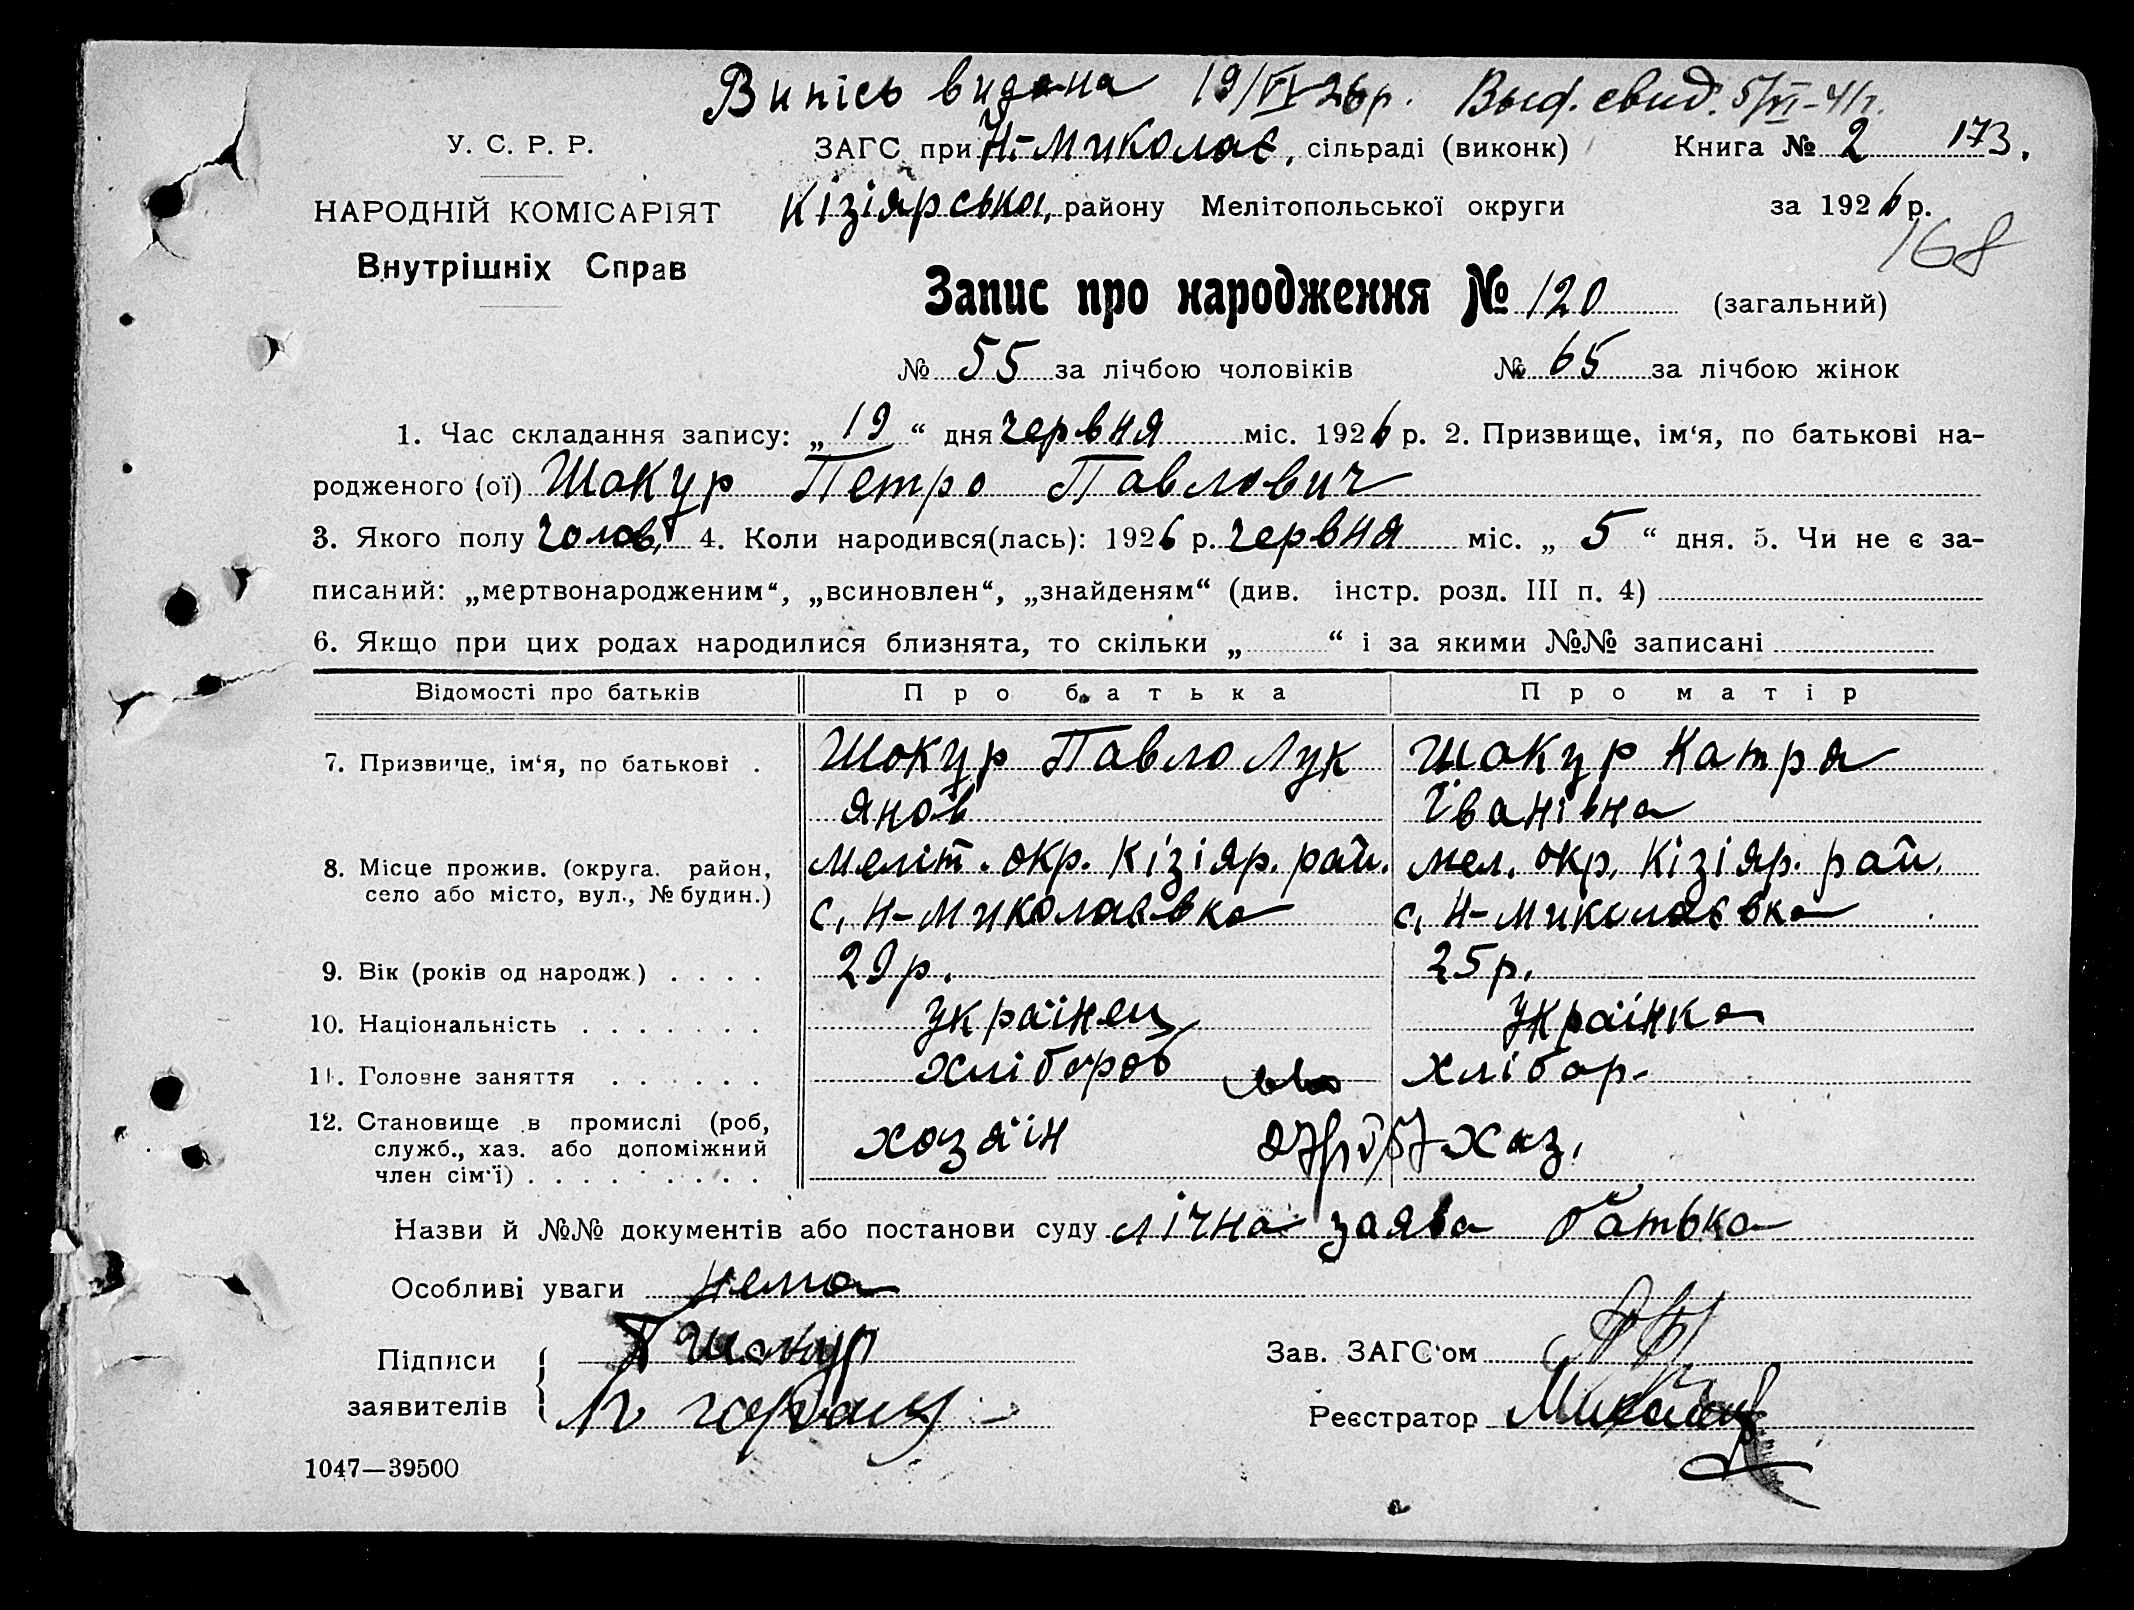 Випісь видана 19/VI 26 р. Выд. свид. 5/VI-41 г.
У. С. Р. Р. ЗАГС при Н.-Миколає, сільраді (виконк) Книга № 2 173.
НАРОДНІЙ КОМІСАРІЯТ Кізіярська, району Мелітопольської округи за 1926 р.
168
Внутрішніх Справ
Запис про народження № 120 (загальний)
№ 55 за лічбою чоловіків № 65 за лічбою жінок
1. Час складання запису: „ 19 “ дня червня міс. 1926 р. 2. Призвище, ім‘я, по батькові на-
родженого (ої) Шокур Петро Павлович
3. Якого полу Голов, 4. Коли народився(лась): 1926 р. червня міс. „ 5 “ дня. 5. Чи не є за-
писаний: „мертвонародженим“, „всиновлен“, „знайденям“ (див. інстр. розд. III п. 4)
6. Якщо при цих родах народилися близнята, то скільки „ “ і за якими №№ записані
Відомості про батьків Про батька Про матір
7. Призвище, ім‘я, по батькові . Шокур Павло Лук Шокур Катря
янов Іванівна
8. Місце прожив. (округа. район, Меліт. окр. Кізіяр. рай. Мел. окр. Кізіяр. рай.
село або місто, вул., № будин.) с. Н-Миколаєвка с. Н-Миколаєвка
9. Вік (років од народж) . . . . 29 р. 25 р.
10. Національність . . . . . . . українец українка
11. Головне заняття . . . . . . хлібороб хлібор.
12. Становище в промислі (роб, хозяїн хаз.
служб., хаз. або допоміжний
член сім‘ї) . . . . . . . . .
Назви й №№ документів або постанови суду лічна заява батька
Особливі уваги нема
Підписи П Шокур Зав. ЗАГС‘ом
заявителів Реєстратор
1047—39500